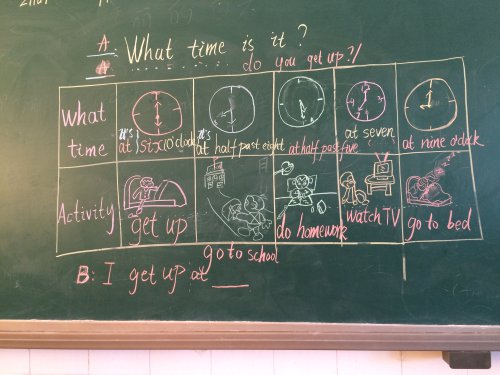 A: What time is it?
A: ............ do you get up?/
What time
it's at six o'clock
it's at half past eight
at half past five
at seven
at nine o'clock
Activity
get up
go to school
do homework
watch TV
go to bed
B: I get up at ___